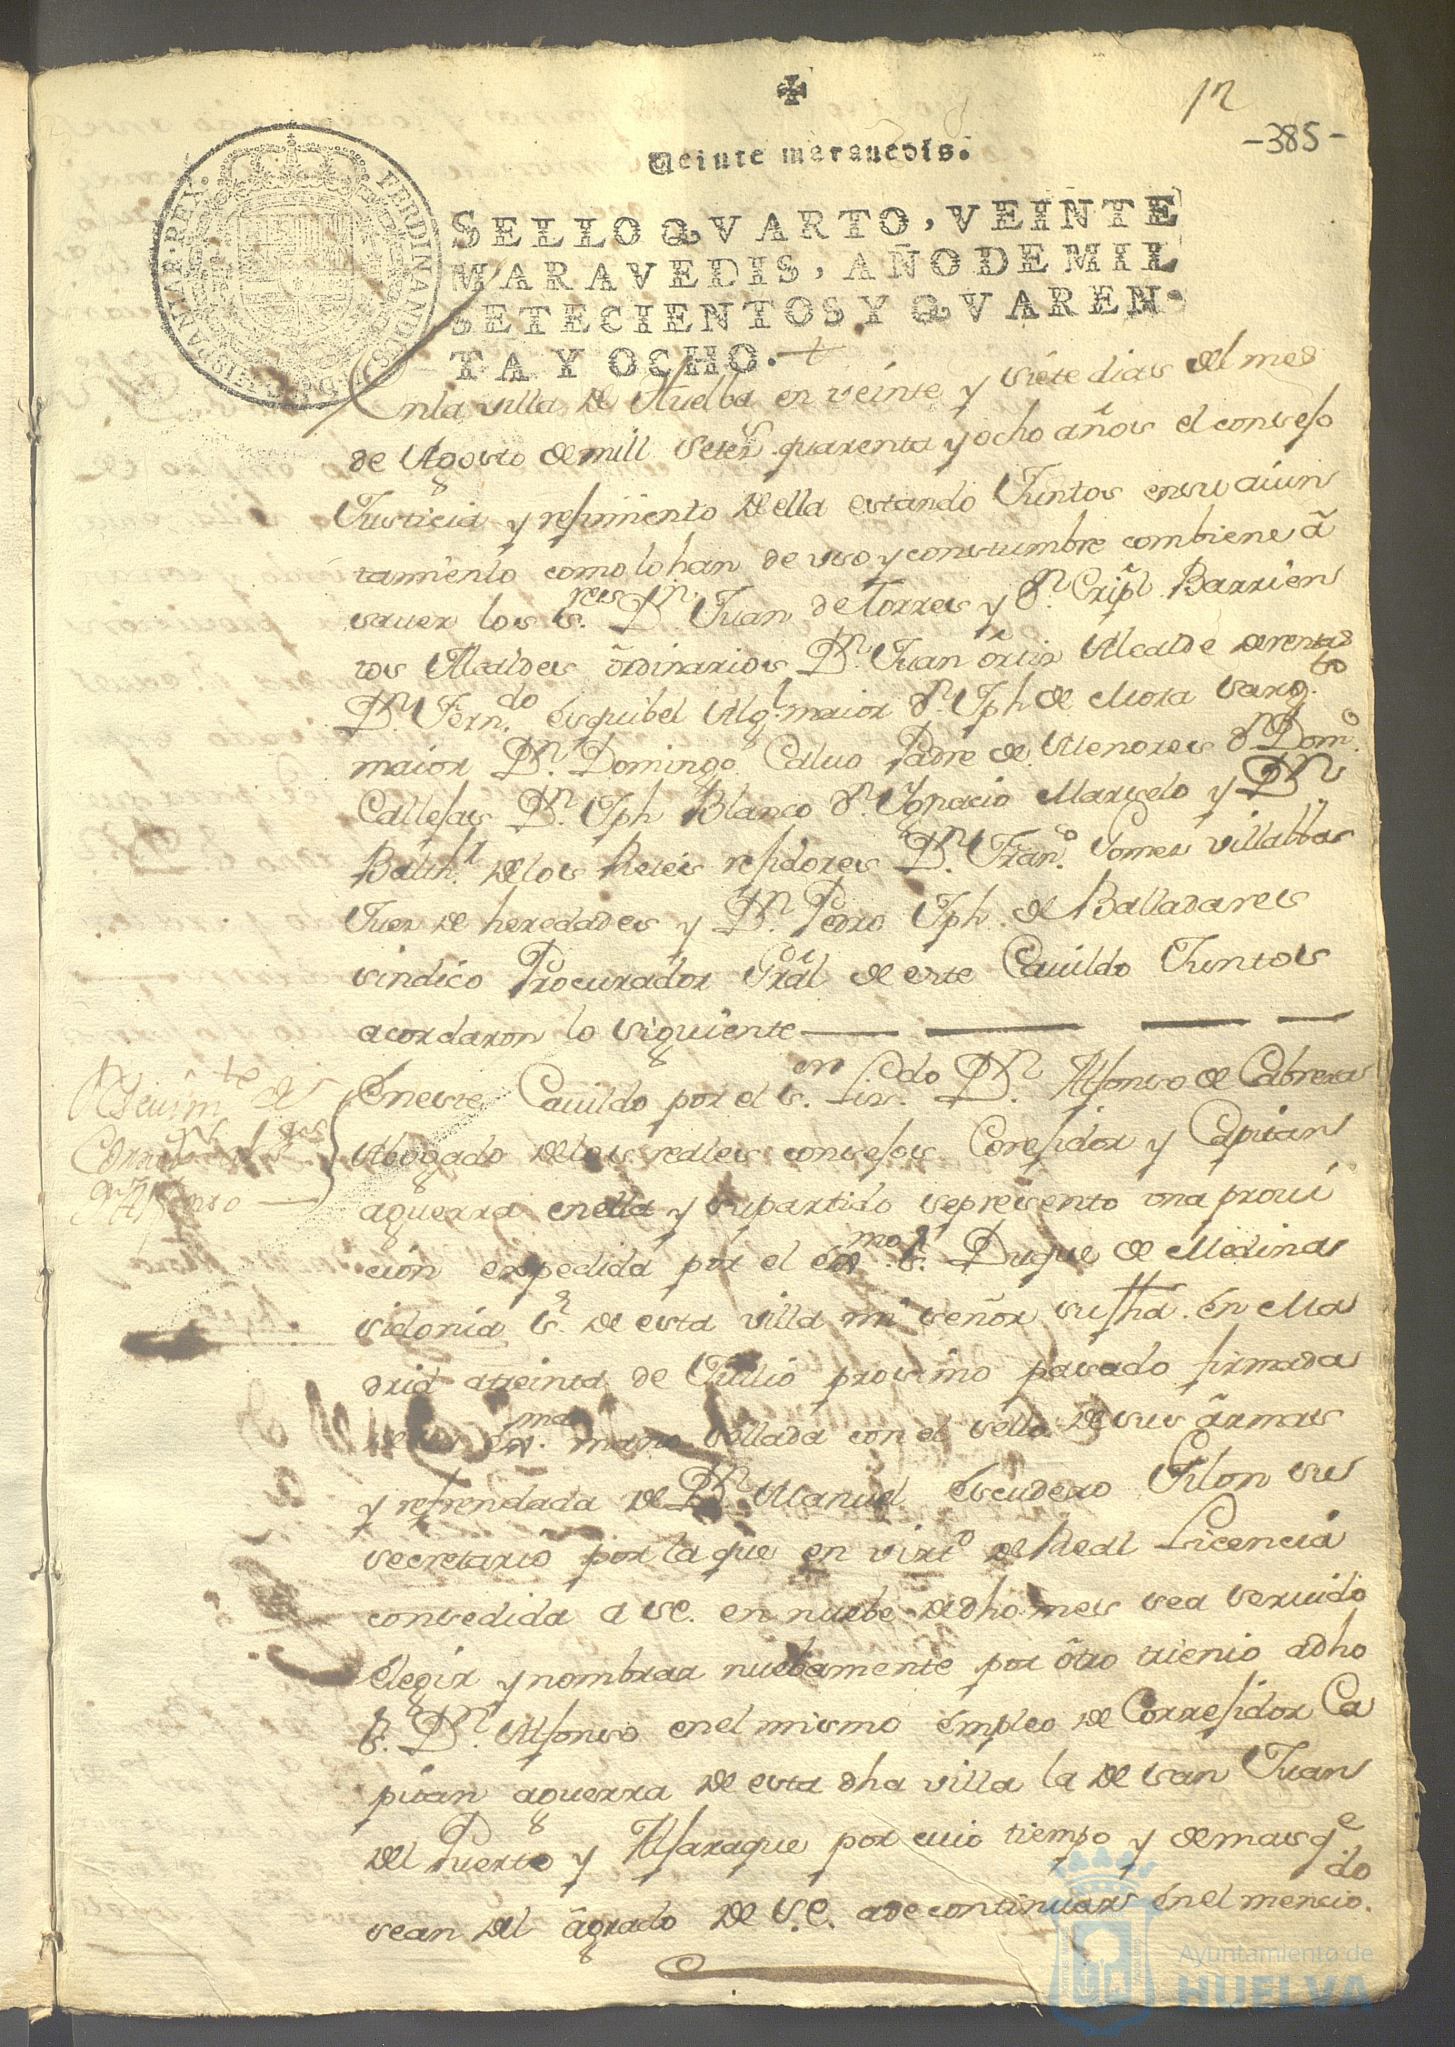 12
-385-
Veinte maravedis.
SELLO QVARTO, VEINTE
MARAVEDIS, AÑO DE MIL
SETECIENTOS Y QVAREN-
TA Y OCHO.
HISPANIAR·REX· FERDINANDUS·VI·D·G·
Enla villa de Huelba en veinte y siete dias del mes
de Agosto de mill setezs. quarenta y ocho años el consejo
Justicia y rejimiento de ella estando Juntos ensu aiun
tamiento como lo han de uso y constumbre combiene â
sauer los ss.res Dn. Juan de Torres y dn. Cripl. Barrien
tos Alcaldes ôrdinarios Dn. Juan ôrtiz Alcalde de rentas
Dn. Fern.do êsquibel Alg.l maior dn. Jph de Mora sarg.to
maior Dn. Domingo Caluo Padre de Menores dn. Dom.o
Callejas Dn. Jph Blanco dn. Ygnacio Marselo y Dn.
Balth.r de los Reies rejidores Dn. Fran.co Gomez villalbas
Juez de heredades y Dn. Pedro Jph. de Balladares
sindico Procurador Gral de este Cauildo Juntos
acordaron lo siguiente
Reciuim.to de
Corrr.
dn. Alfonso
êneste Cauildo por el s.or Liz.do Dn. Alfonso de Cabrera
Abogado de los reales consejos Corejidor y Capitan
aguerra enella y supartido sepresento una proui
cion expedida por el êx.mo s.r Duque de Medina
sidonia s.r de esta villa mi señor su fha. ên Ma
drid atreinta de Jullio procsimo pasado firmada
êx.ma mano sellada con el sello de sus ârmas
y refrendada de Dn. Manuel êscudero Jilon su
secretario por la que en virt.o de Real Licencia
consedida a S.E. en nuebe de dho mes sea seruido
êlegir y nombrar nuebamente por ôtro trienio adho
s.r Dn. Alfonso enel mismo êmpleo de Correjidor Ca
pitan aguerra de esta dha villa la de san Juan
del Puerto y Aljaraque por cuio tiempo y demas q.e
sean del âgrado de S.E. adecontinuar ênel mencio.do
Ayuntamiento de
HUELVA